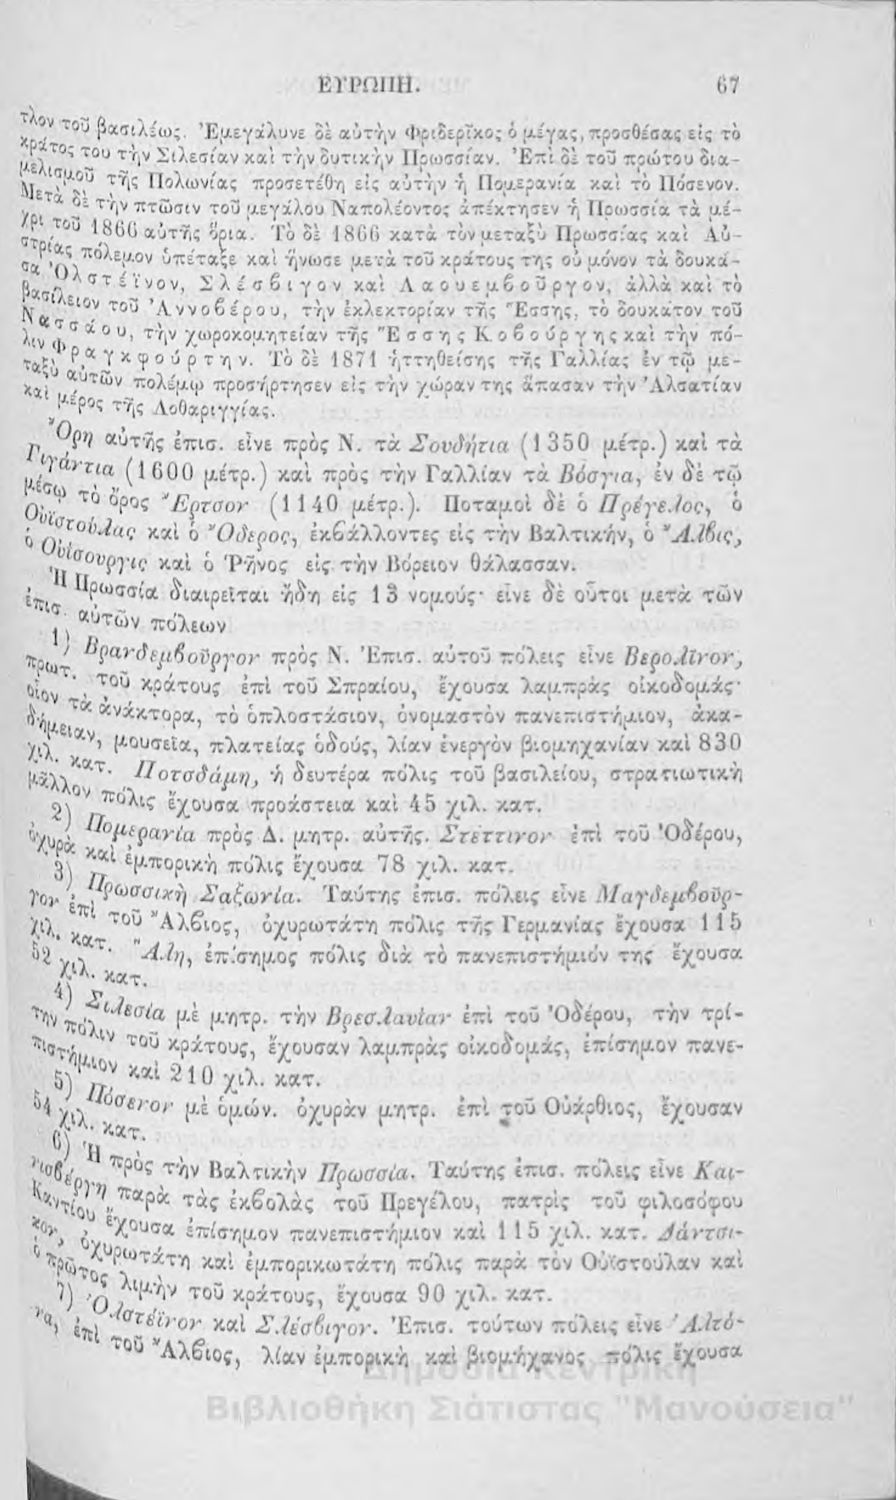 ΕΥΡΩΠΗ. 67
τλον τοῦ βασιλέως. Ἐμεγάλυνε δὲ αὐτὴν Φριδερῖκος ὁ μέγας, προσθέσας εἰς τὸ
κράτος του τὴν Σιλεσίαν καὶ τὴν δυτικὴν Πρωσσίαν. Ἐπὶ δὲ τοῦ πρώτου δια-
μελισμοῦ τῆς Πολωνίας προσετέθη εἰς αὐτὴν ἡ Πομερανία καὶ τὸ Πόσενον.
Μετὰ δὲ τὴν πτῶσιν τοῦ μεγάλου Ναπολέοντος ἀπέκτησεν ἡ Πρωσσία τὰ μέ-
χρι τοῦ 1866 αὐτῆς ὅρια. Τὸ δὲ 1866 κατὰ τὸν μεταξὺ Πρωσσίας καὶ Αὐ-
στρίας πόλεμον ὑπέταξε καὶ ἥνωσε μετὰ τοῦ κράτους της οὐ μόνον τὰ δουκά-
τα Ὁλστέϊνον, Σλέσβιγον καὶ Λαουεμβοῦργον, ἀλλὰ καὶ τὸ
βασίλειον τοῦ Ἀννοβέρου, τὴν ἐκλεκτορίαν τῆς Ἔσσης, τὸ δουκάτον τοῦ
Νασσάου, τὴν χωροκομητείαν τῆς Ἔσσης Κοβούργης καὶ τὴν πό-
λιν Φραγκφούρτην. Τὸ δὲ 1871 ἡττηθείσης τῆς Γαλλίας ἐν τῷ με-
ταξὺ αὐτῶν πολέμῳ προσήρτησεν εἰς τὴν χώραν της ἅπασαν τὴν Ἀλσατίαν
καὶ μέρος τῆς Λοθαριγγίας.
Ὄρη αὐτῆς ἐπισ. εἶνε πρὸς Ν. τὰ Σουδήτια (1350 μέτρ.) καὶ τὰ
Γιγάντια (1600 μέτρ.) καὶ πρὸς τὴν Γαλλίαν τὰ Βόσγια, ἐν δὲ τῷ
μέσῳ τὸ ὄρος Ἔρτσον (1140 μέτρ.). Ποταμοὶ δὲ ὁ Πρέγελος, ὁ
Οὐϊστούλας καὶ ὁ Ὄδερος, ἐκβάλλοντες εἰς τὴν Βαλτικήν, ὁ Ἄλβις,
ὁ Οὐίσουργις καὶ ὁ Ῥῆνος εἰς τὴν Βόρειον θάλασσαν.
Ἡ Πρωσσία διαιρεῖται ἤδη εἰς 13 νομούς· εἶνε δὲ οὗτοι μετὰ τῶν
ἐπισ. αὐτῶν πόλεων
1) Βρανδεμβοῦργον πρὸς Ν. Ἐπισ. αὐτοῦ πόλεις εἶνε Βερολῖνον,
πρωτ. τοῦ κράτους ἐπὶ τοῦ Σπραίου, ἔχουσα λαμπρὰς οἰκοδομάς·
οἷον τὰ ἀνάκτορα, τὸ ὁπλοστάσιον, ὀνομαστὸν πανεπιστήμιον, ἀκα-
δήμειαν, μουσεῖα, πλατείας ὁδούς, λίαν ἐνεργὸν βιομηχανίαν καὶ 830
χιλ. κατ. Ποτσδάμη, ἡ δευτέρα πόλις τοῦ βασιλείου, στρατιωτικὴ
μᾶλλον πόλις ἔχουσα προάστεια καὶ 45 χιλ. κατ.
2) Πομερανία πρὸς Δ. μητρ. αὐτῆς. Στέττινον ἐπὶ τοῦ Ὀδέρου,
ὀχυρὰ καὶ ἐμπορικὴ πόλις ἔχουσα 78 χιλ. κατ.
3) Πρωσσικὴ Σαξωνία. Ταύτης ἐπισ. πόλεις εἶνε Μαγδεμβοῦρ-
γον ἐπὶ τοῦ Ἄλβιος, ὀχυρωτάτη πόλις τῆς Γερμανίας ἔχουσα 115
χιλ. κατ. Ἄλη, ἐπίσημος πόλις διὰ τὸ πανεπιστήμιόν της ἔχουσα
52 χιλ. κατ.
4) Σιλεσία μὲ μητρ. τὴν Βρεσλαυΐαν ἐπὶ τοῦ Ὀδέρου, τὴν τρί-
την πόλιν τοῦ κράτους, ἔχουσαν λαμπρὰς οἰκοδομάς, ἐπίσημον πανε-
πιστήμιον καὶ 210 χιλ. κατ.
5) Πόσενον μὲ ὁμών. ὀχυρὰν μητρ. ἐπὶ τοῦ Οὐάρθιος, ἔχουσαν
54 χιλ. κατ.
6) Ἡ πρὸς τὴν Βαλτικὴν Πρωσσία. Ταύτης ἐπισ. πόλεις εἶνε Και-
νισβέργη παρὰ τὰς ἐκβολὰς τοῦ Πρεγέλου, πατρὶς τοῦ φιλοσόφου
Καντίου ἔχουσα ἐπίσημον πανεπιστήμιον καὶ 115 χιλ. κατ. Δάντσι-
κον, ὀχυρωτάτη καὶ ἐμπορικωτάτη πόλις παρὰ τὸν Οὐϊστούλαν καὶ
ὁ πρῶτος λιμὴν τοῦ κράτους, ἔχουσα 90 χιλ. κατ.
7) Ὁλστέϊνον καὶ Σλέσβιγον. Ἐπισ. τούτων πόλεις εἶνε Ἀλτό-
να, ἐπὶ τοῦ Ἄλβιος, λίαν ἐμπορικὴ καὶ βιομήχανος πόλις ἔχουσα
Δημόσια Κεντρική
Βιβλιοθήκη Σιάτιστας "Μανούσεια"